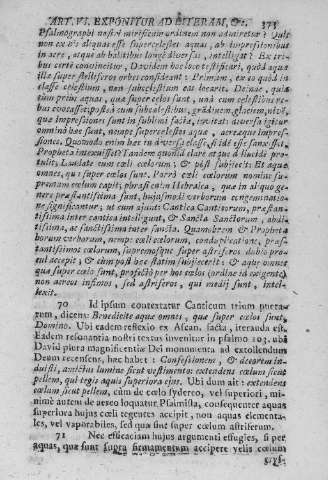 ART. VI. EXPONITUR AD LITERAM, &c. 373
Psalmographi nostri mirificum ordinem non admiretur? Quis
non ex iis aliquas esse supercælestes aquas, ab impressionibus
in aere, atque ab halitibus longè diversas, intelligat? Ex tri-
bus certè convincitur, Davidem hoc loco testificari, quòd aquæ
illæ super stelliferos orbes considant: Primùm, ex eo quòd in
classe cælestium, non subcælestium eas locarit. Deinde, quia
tum primò aquas, quæ super cælos sunt, unà cum cælestibus re-
bus evocasset; postea cum subcælestibus, grandinem, glaciem, nivẽ,
quæ impressiones sunt in sublimi facta, invitat: diversa igitur
omninò hæc sunt, nempe supercælestes aquæ, aereæque impres-
siones. Quomodo enim hæc in diversa classe, si idẽ esse sensisset,
Propheta intexuisset? Tandem quòd id clarè atque dilucidè protulit;
Laudate eum cæli cælorum. Et post subjecit: Et aquæ
omnes, quæ super cælos sunt. Porrò cæli cælorum nomine su-
premum cælum capit, phrasi enim Hebraica, quæ in aliquo ge-
nere præstantissima sunt, hujusmodi verborum congeminatione
significantur; ut cum ajunt Cantica Canticorum, præstan-
tissima inter cantica intelligunt, & Sancta Sanctorum, abdi-
tissima, ac sanctissima inter sancta. Quamobrem & Propheta
horum verborum, nempe cæli cælorum, conduplicatione, præ-
stantissimos cælorum, supremosque super astriferos dubio pro-
cul accepit, & cum post hos statim subjecerit: & aquæ omnes
quæ super cælo sunt, profectò per hos cælos (ordine id exigente)
non aereos infimos, sed astriferos, qui medij sunt, intel-
lexit.
70 Id ipsum contextatur Canticum trium pue-
rum, dicens: Benedicite aquæ omnes, quæ super cælos sunt,
Domino. Ubi eadem reflexio ex Ascan. facta, iteranda est.
Eadem resonantia nostri textus invenitur in psalmo 103. ubi
David plura magnificentiæ Dei monumenta ad extollendum
Deum recensens, hæc habet: Confessionem, & decorem in-
duisti, amictus lumine sicut vestimento: extendens cælum sicut
pellem, qui tegis aquis superiora ejus. Ubi dum ait: extendens
cælum sicut pellem, cùm de cælo sydereo, vel superiori, mi-
nimè autem de aereo loquatur Psalmista, consequenter aquas
superiora hujus cæli tegentes accipit, non aquas elementa-
les, vel vaporabiles, sed quæ sint super cœlum astriferum.
71 Nec efficaciam hujus argumenti effugies, si per
aquas, quæ sunt supra firmamentum accipere velis cœlum